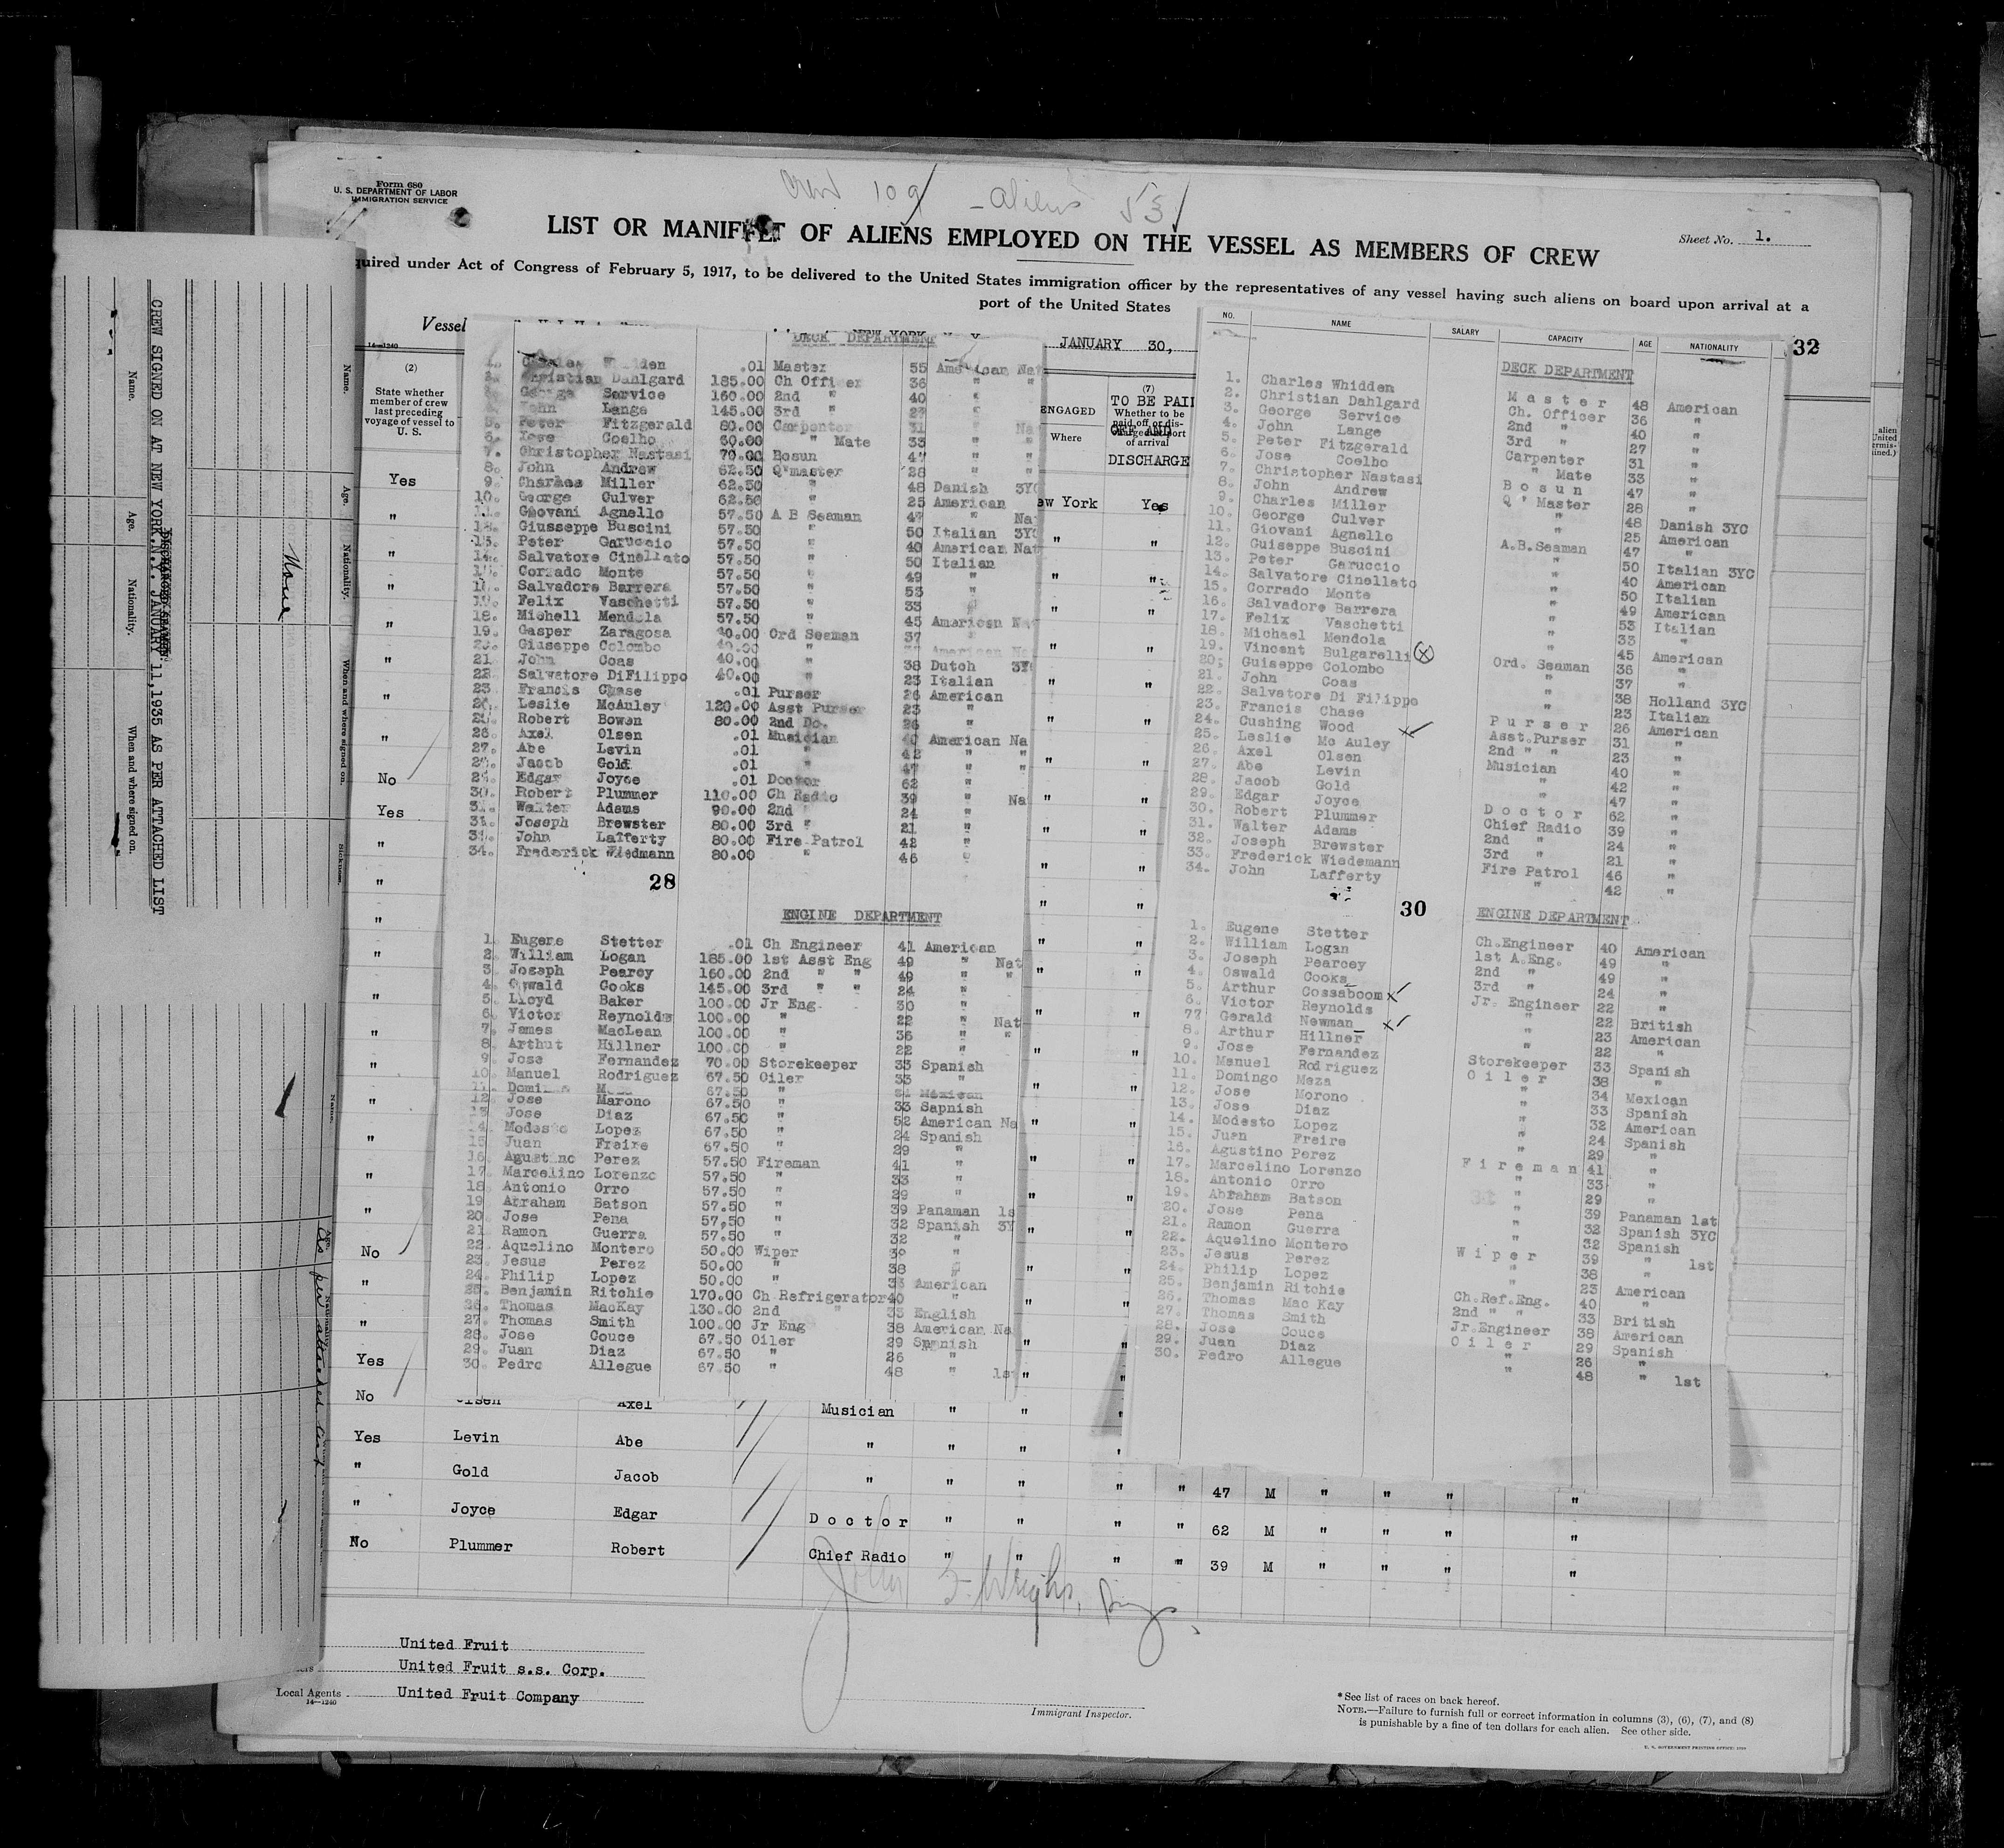 Form 680
U. S. DEPARTMENT OF LABOR
IMMIGRATION SERVICE
Crew 109 - aliens 53
LIST OR MANIFEST OF ALIENS EMPLOYED ON THE VESSEL AS MEMBERS OF CREW
Sheet No. 1.
quired under Act of Congress of February 5, 1917, to be delivered to the United States immigration officer by the representatives of any vessel having such aliens on board upon arrival at a
port of the United States
Vessel
NEW YORK
JANUARY 30,
32
14—1240
(2)
State whether
member of crew
last preceding
voyage of vessel to
U. S.
ENGAGED
Where
(7)
TO BE PAID
Whether to be
paid off or dis-
charged at port
of arrival
OFF AND
DISCHARGE
ew York Yes
Yes
No
Yes
No
Yes
No
Yes
No
DECK DEPARTMENT
Whidden .01 Master 55 American Nat
2. Christian Dahlgard 185.00 Ch Officer 36 " "
George Service 160.00 2nd " 40 "
John Lange 145.00 3rd " 27 "
5. Peter Fitzgerald 80.00 Carpenter 31 " Na
6. Jose Coelho 60.00 " Mate 33 " "
7. Christopher Nastasi 70.00 Bosun 47 " "
8. John Andrew 62.50 Q'master 28 " "
9. Charles Miller 62.50 " 48 Danish 3YC
10. George Culver 62.50 " 25 American
11. Giovani Agnello 57.50 A B Seaman 47 " Na
12. Giusseppe Buscini 57.50 " 50 Italian 3YC
13. Peter Garuccio 57.50 " 40 American Nat
14. Salvatore Cinellato 57.50 " 50 Italian
15. Corrado Monte 57.50 " 49 "
16. Salvadore Barrera 57.50 " 53 "
17. Felix Vaschetti 57.50 " 33 "
18. Michell Mendola 57.50 " 45 American Na
19. Gasper Zaragosa 40.00 Ord Seaman 37 "
20. Giuseppe Colombo 40.00 " American Na
21. John Coas 40.00 " 38 Dutch 3Y
22. Salvatore DiFilippo 40.00 " 23 Italian
23. Francis Chase .01 Purser 26 American
24. Leslie McAuley 120.00 Asst Purser 23 "
25. Robert Bowen 80.00 2nd Do. 26 "
26. Axel Olsen .01 Musician 40 American Na
27. Abe Levin .01 " 42 " "
28. Jacob Gold .01 " 47 " "
29. Edgar Joyce .01 Doctor 62 "
30. Robert Plummer 110.00 Ch Radio 39 " Na
31. Walter Adams 90.00 2nd " 24 "
32. Joseph Brewster 80.00 3rd " 21 "
33. John Lafferty 80.00 Fire Patrol 42 "
34. Frederick Wiedmann 80.00 " 46 "
28
ENGINE DEPARTMENT
1. Eugene Stetter .01 Ch Engineer 41 American
2. William Logan 185.00 1st Asst Eng 49 " Nat
3. Joseph Pearcy 160.00 2nd " " 49 " "
4. Oswald Cooks 145.00 3rd " " 24 "
5. Lloyd Baker 100.00 Jr Eng. 30 "
6. Victor Reynolds 100.00 " 22 " Nat
7. James MacLean 100.00 " 36 " "
8. Arthut Hillner 100.00 " 22 "
9. Jose Fernandez 70.00 Storekeeper 33 Spanish
10. Manuel Rodriguez 67.50 Oiler 33 "
11. 67.50 " Mexican
12. Jose Marono 67.50 " 33 Sapnish
13. Jose Diaz 67.50 " 52 American Na
14. Modesto Lopez 67.50 " 24 Spanish
15. Juan Freire 67.50 " 29 "
16. Agustino Perez 57.50 Fireman 41 "
17. Marcelino Lorenzo 57.50 " 33 "
18. Antonio Orro 57.50 " 29 "
19. Abraham Batson 57.50 " 39 Panaman 1s
20. Jose Pena 57,50 " 32 Spanish 3Y
21. Ramon Guerra 57.50 " 32 "
22. Aquelino Montero 50.00 Wiper 39 "
23. Jesus Perez 50.00 " 38 "
24. Philip Lopez 50.00 " 33 American
25. Benjamin Ritchie 170.00 Ch Refrigerator 40 "
26. Thomas MacKay 130.00 2nd " 33 English
27. Thomas Smith 100.00 Jr Eng 38 American Na
28. Jose Couce 67.50 Oiler 29 Spanish
29. Juan Diaz 67.50 " 26 "
30. Pedro Allegue 67.50 " 48 " 1st
NO. NAME SALARY CAPACITY AGE NATIONALITY
DECK DEPARTMENT
1. Charles Whidden Master 48 American
2. Christian Dahlgard Ch. Officer 36 "
3. George Service 2nd " 40 "
4. John Lange 3rd " 27 "
5. Peter Fitzgerald Carpenter 31 "
6. Jose Coelho " Mate 33 "
7. Christopher Nastasi Bosun 47 "
8. John Andrew Q' Master 28 "
9. Charles Miller " 48 Danish 3YC
10. George Culver " 25 American
11. Giovani Agnello A.B.Seaman 47 "
12. Guiseppe Buscini " 50 Italian 3YC
13. Peter Garuccio " 40 American
14. Salvatore Cinellato " 50 Italian
15. Corrado Monte " 49 American
16. Salvadore Barrera " 53 Italian
17. Felix Vaschetti " 33 "
18. Michael Mendola " 45 American
19. Vincent Bulgarelli Ord. Seaman 36 "
20. Guiseppe Colombo " 37 "
21. John Coas " 38 Holland 3YC
22. Salvatore Di Filippo " 23 Italian
23. Francis Chase Purser 26 American
24. Cushing Wood Asst.Purser 31 "
25. Leslie Mc Auley 2nd " " 23 "
26. Axel Olsen Musician 40 "
27. Abe Levin " 42 "
28. Jacob Gold " 47 "
29. Edgar Joyce Doctor 62 "
30. Robert Plummer Chief Radio 39 "
31. Walter Adams 2nd " 24 "
32. Joseph Brewster 3rd " 21 "
33. Frederick Wiedemann Fire Patrol 46 "
34. John Lafferty " 42 "
30
ENGINE DEPARTMENT
1. Eugene Stetter Ch.Engineer 40 American
2. William Logan 1st A.Eng. 49 "
3. Joseph Pearcey 2nd " 49 "
4. Oswald Cooks 3rd " 24 "
5. Arthur Cossaboom Jr. Engineer 22 "
6. Victor Reynolds " 22 British
77 Gerald Newman " 23 American
8. Arthur Hillner " 22 "
9. Jose Fernandez Storekeeper 33 Spanish
10. Manuel Rodriguez Oiler 38 "
11. Domingo Meza " 34 Mexican
12. Jose Morono " 33 Spanish
13. Jose Diaz " 32 American
14. Modesto Lopez " 24 Spanish
15. Juan Freire " 29 "
16. Agustino Perez Fireman 41 "
17. Marcelino Lorenzo " 33 "
18. Antonio Orro " 29 "
19. Abraham Batson " 39 Panaman 1st
20. Jose Pena " 32 Spanish 3YC
21. Ramon Guerra " 32 Spanish
22. Aquelino Montero Wiper 39 " 1st
23. Jesus Perez " 38 "
24. Philip Lopez " 23 American
25. Benjamin Ritchie Ch.Ref.Eng. 40 "
26. Thomas Mac Kay 2nd " " 33 British
27. Thomas Smith Jr.Engineer 38 American
28. Jose Couce Oiler 29 Spanish
29. Juan Diaz " 26 "
30. Pedro Allegue " 48 " 1st
Axel Musician " "
Yes Levin Abe " " "
" Gold Jacob " " " " " 47 M " " " "
" Joyce Edgar Doctor " " " " 62 M " " " "
No Plummer Robert Chief Radio " " " " 39 M " " " "
United Fruit
United Fruit s.s. Corp.
Local Agents United Fruit Company
14—1240
Immigrant Inspector.
* See list of races on back hereof.
NOTE.—Failure to furnish full or correct information in columns (3), (6), (7), and (8)
is punishable by a fine of ten dollars for each alien. See other side.
U. S. GOVERNMENT PRINTING OFFICE
CREW SIGNED ON AT NEW YORK.N.Y. JANUARY 11,1935 AS PER ATTACHED LIST
Name. Age. Nationality. When and where signed on.
Name. Age. Nationality. When and where signed on. Sickness.
None
Name. Age. Nationality.
as per attached list